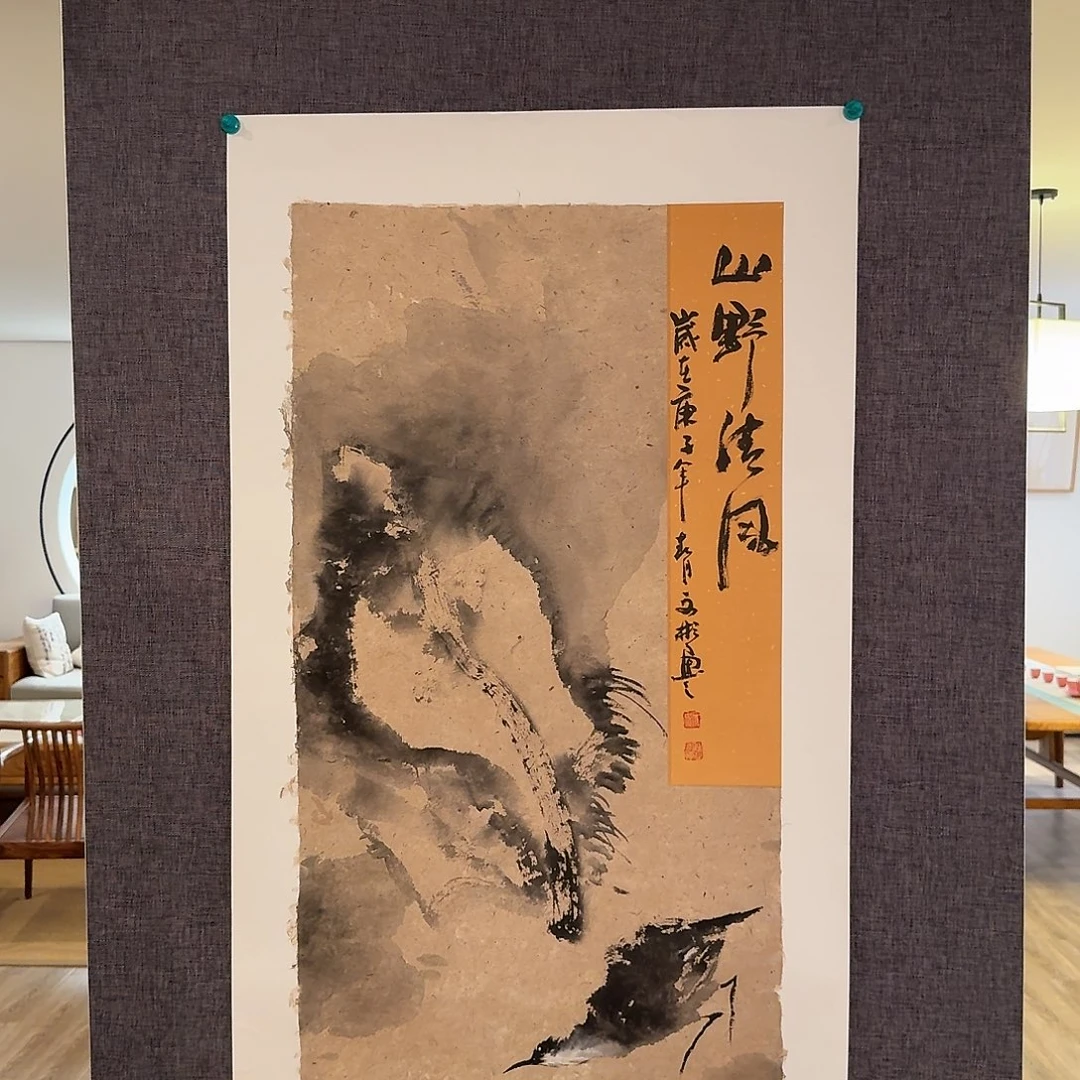 山野清风
歲在庚子年春月文彬画之